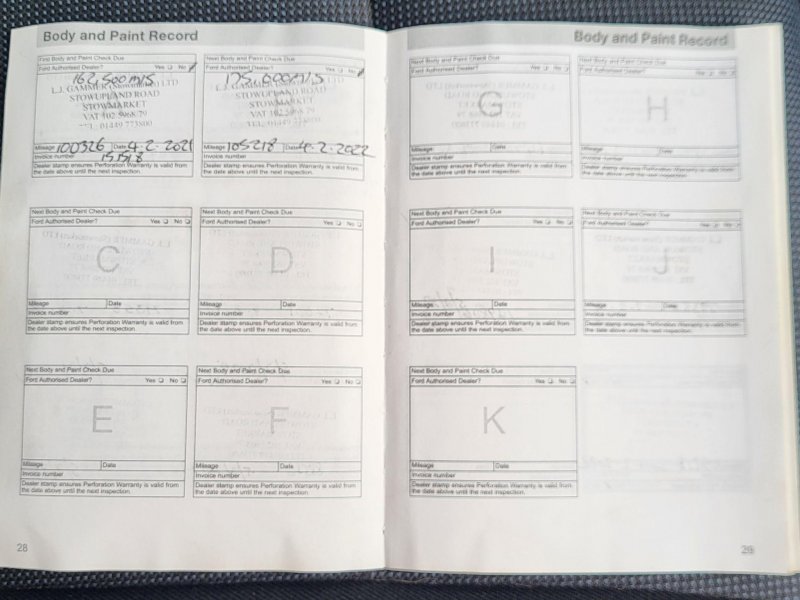 Body and Paint Record
First Body and Paint Check Due
Ford Authorised Dealer? Yes No
162,500 m/s
L.J. GAMMER (Stowmarket) LTD
STOWUPLAND ROAD
STOWMARKET
VAT 102 5968 79
TEL. 01449 773800
Mileage 100326 Date 4.2.2021
Invoice number
Dealer stamp ensures Perforation Warranty is valid from
the date above until the next inspection.
Next Body and Paint Check Due
Ford Authorised Dealer? Yes No
L.J. GAMMER (Stowmarket) LTD
STOWUPLAND ROAD
STOWMARKET
VAT 102 5968 79
TEL. 01449 773800
Mileage 105218 Date 4.2.2022
Invoice number
Dealer stamp ensures Perforation Warranty is valid from
the date above until the next inspection.
Next Body and Paint Check Due
Ford Authorised Dealer? Yes No
C
Mileage Date
Invoice number
Dealer stamp ensures Perforation Warranty is valid from
the date above until the next inspection.
Next Body and Paint Check Due
Ford Authorised Dealer? Yes No
D
Mileage Date
Invoice number
Dealer stamp ensures Perforation Warranty is valid from
the date above until the next inspection.
Next Body and Paint Check Due
Ford Authorised Dealer? Yes No
E
Mileage Date
Invoice number
Dealer stamp ensures Perforation Warranty is valid from
the date above until the next inspection.
Next Body and Paint Check Due
Ford Authorised Dealer? Yes No
F
Mileage Date
Invoice number
Dealer stamp ensures Perforation Warranty is valid from
the date above until the next inspection.
28
Body and Paint Record
Next Body and Paint Check Due
Ford Authorised Dealer? Yes No
G
Mileage Date
Invoice number
Dealer stamp ensures Perforation Warranty is valid from
the date above until the next inspection.
Next Body and Paint Check Due
Ford Authorised Dealer? Yes No
H
Mileage Date
Invoice number
Dealer stamp ensures Perforation Warranty is valid from
the date above until the next inspection.
Next Body and Paint Check Due
Ford Authorised Dealer? Yes No
I
Mileage Date
Invoice number
Dealer stamp ensures Perforation Warranty is valid from
the date above until the next inspection.
Next Body and Paint Check Due
Ford Authorised Dealer? Yes No
J
Mileage Date
Invoice number
Dealer stamp ensures Perforation Warranty is valid from
the date above until the next inspection.
Next Body and Paint Check Due
Ford Authorised Dealer? Yes No
K
Mileage Date
Invoice number
Dealer stamp ensures Perforation Warranty is valid from
the date above until the next inspection.
29